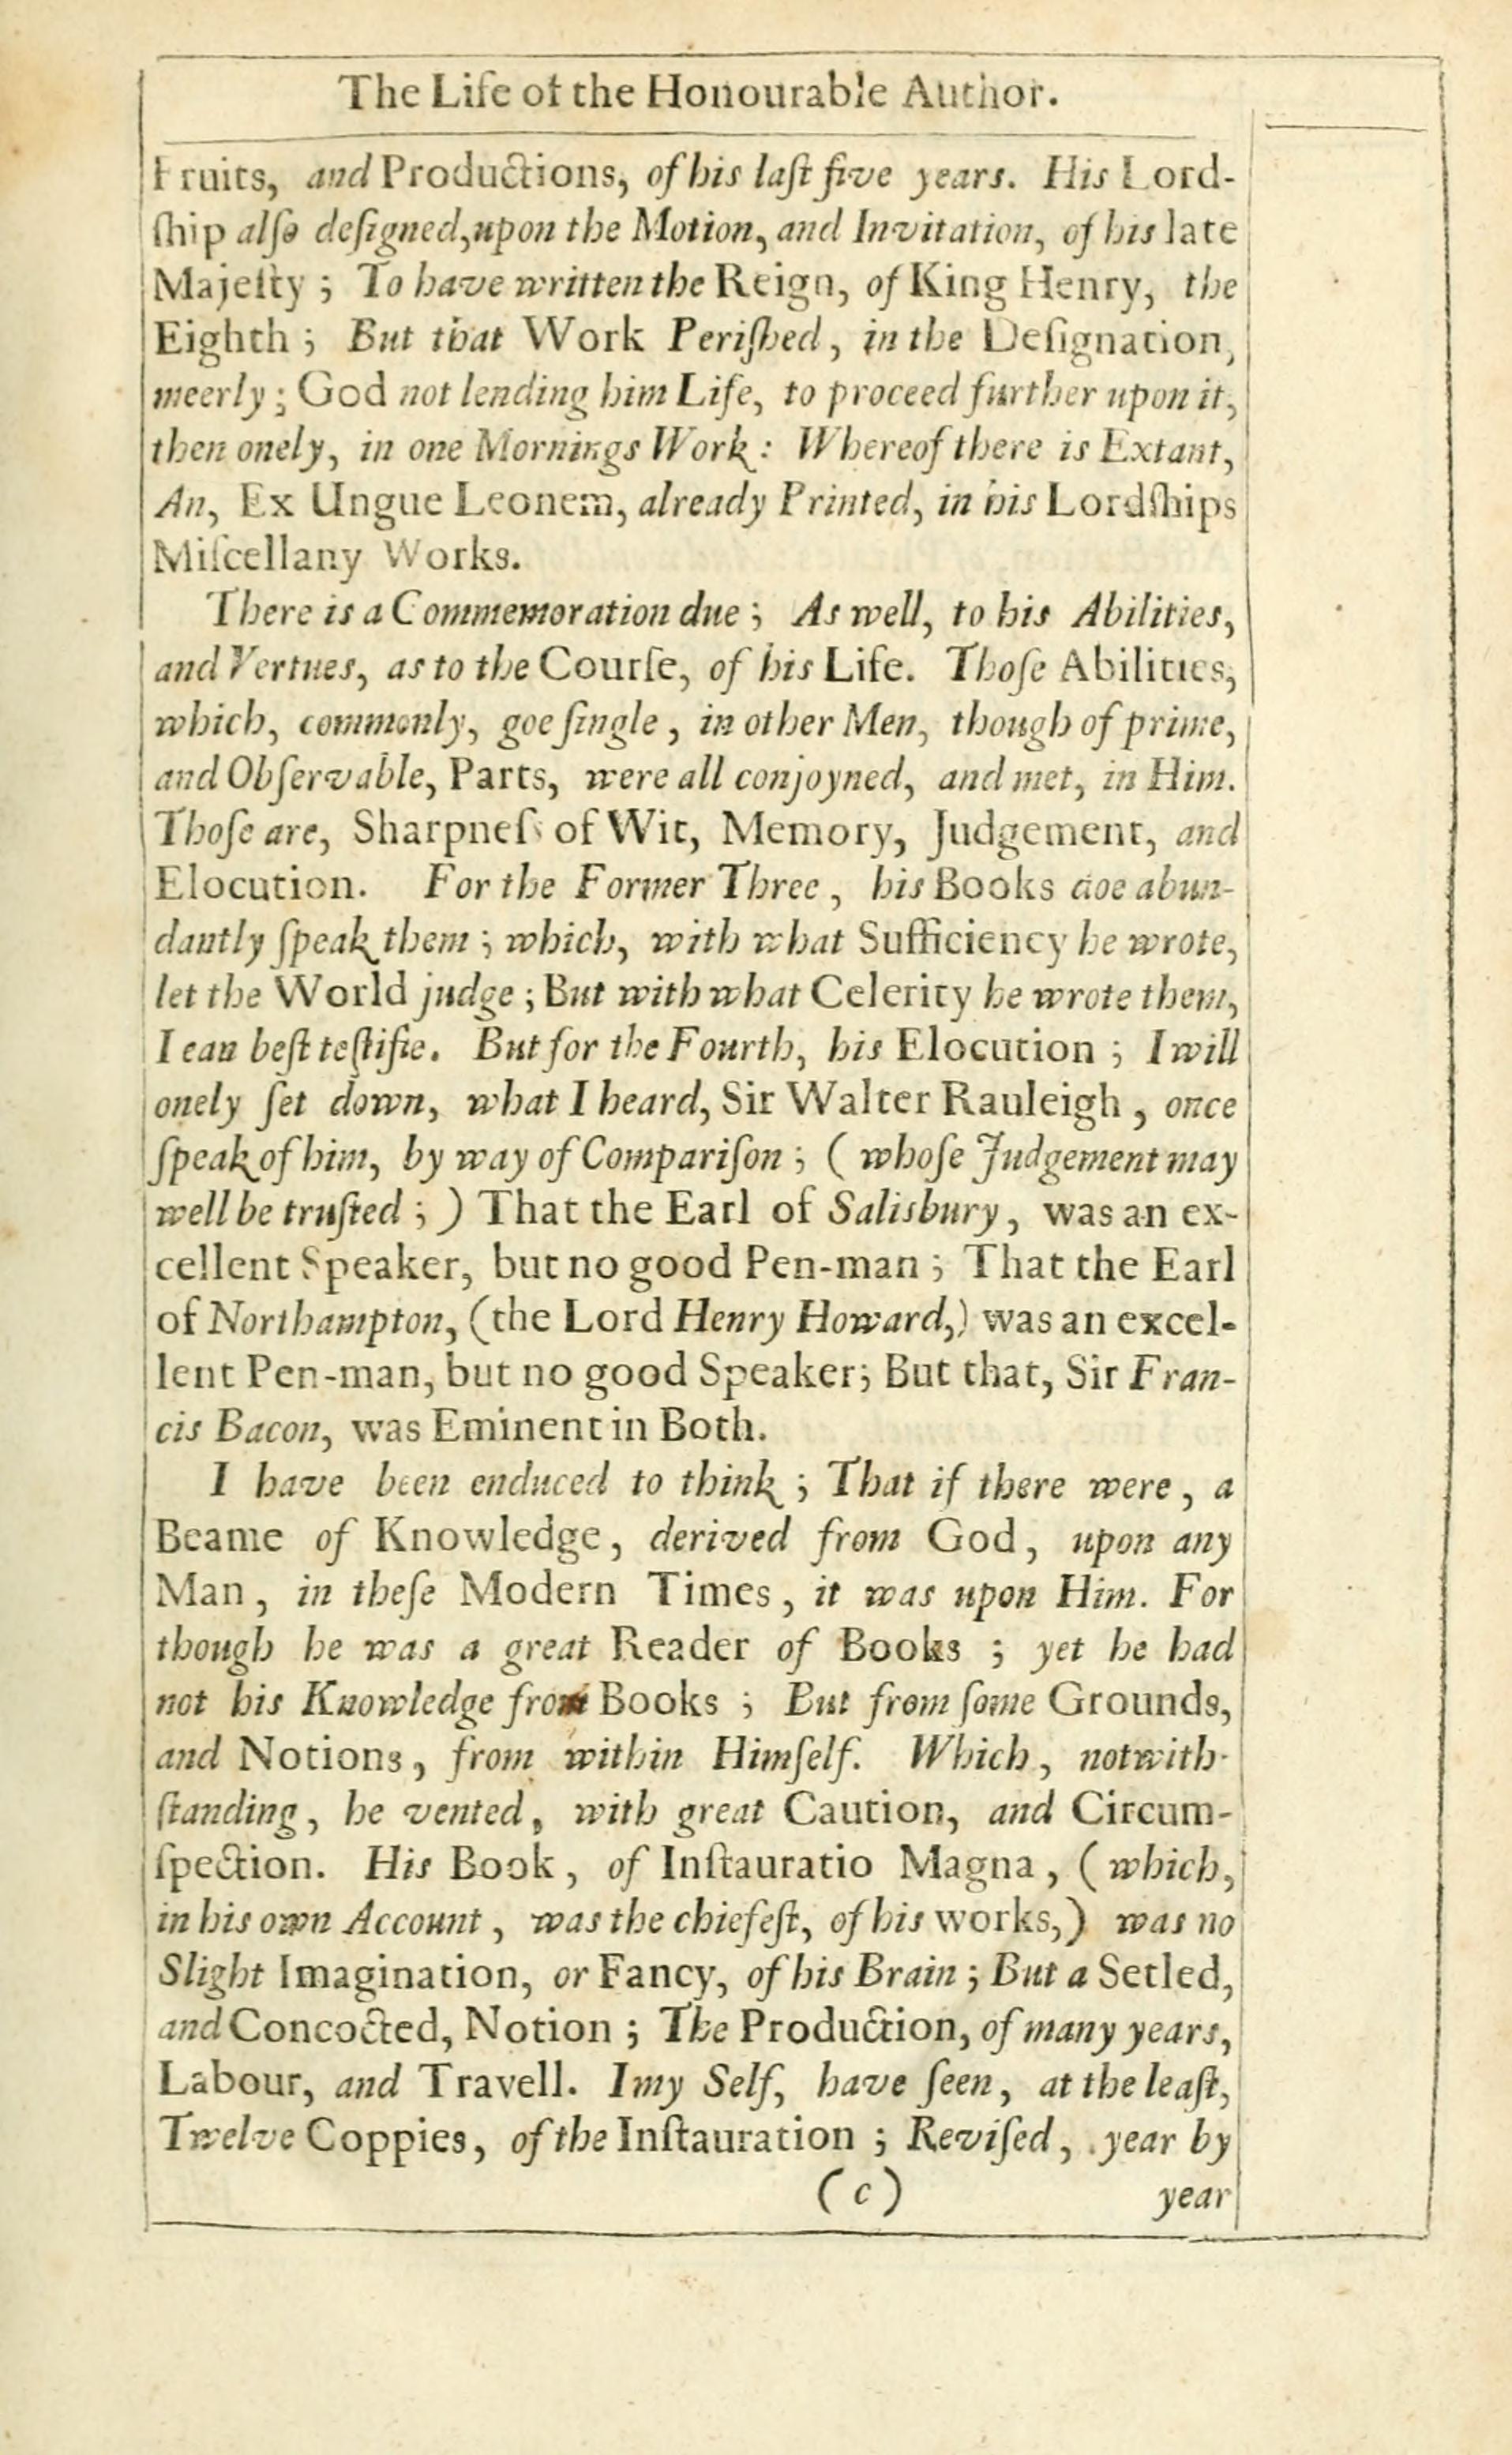 The Life of the Honourable Author.
Fruits, and Productions, of his laſt five years. His Lord-
ſhip alſo deſigned, upon the Motion, and Invitation, of his late
Majeſty ; To have written the Reign, of King Henry, the
Eighth ; But that Work Periſhed, in the Deſignation,
meerly ; God not lending him Life, to proceed further upon it,
then onely, in one Mornings Work : Whereof there is Extant,
An, Ex Ungue Leonem, already Printed, in his Lordſhips
Miſcellany Works.
There is a Commemoration due ; As well, to his Abilities,
and Vertues, as to the Courſe, of his Life. Thoſe Abilities,
which, commonly, goe ſingle, in other Men, though of prime,
and Obſervable, Parts, were all conjoyned, and met, in Him.
Thoſe are, Sharpneſs of Wit, Memory, Judgement, and
Elocution. For the Former Three, his Books doe abun-
dantly ſpeak them ; which, with what Sufficiency he wrote,
let the World judge ; But with what Celerity he wrote them,
I can beſt teſtifie. But for the Fourth, his Elocution ; I will
onely ſet down, what I heard, Sir Walter Rauleigh, once
ſpeak of him, by way of Compariſon ; ( whoſe Judgement may
well be truſted ; ) That the Earl of Salisbury, was an ex-
cellent Speaker, but no good Pen-man ; That the Earl
of Northampton, (the Lord Henry Howard,) was an excel-
lent Pen-man, but no good Speaker; But that, Sir Fran-
cis Bacon, was Eminent in Both.
I have been enduced to think ; That if there were, a
Beame of Knowledge, derived from God, upon any
Man, in theſe Modern Times, it was upon Him. For
though he was a great Reader of Books ; yet he had
not his Knowledge from Books ; But from ſome Grounds,
and Notions, from within Himſelf. Which, notwith-
ſtanding, he vented, with great Caution, and Circum-
ſpection. His Book, of Inſtauratio Magna, ( which,
in his own Account, was the chiefeſt, of his works,) was no
Slight Imagination, or Fancy, of his Brain ; But a Setled,
and Concocted, Notion ; The Production, of many years,
Labour, and Travell. I my Self, have ſeen, at the leaſt,
Twelve Coppies, of the Inſtauration ; Reviſed, year by
(c) year